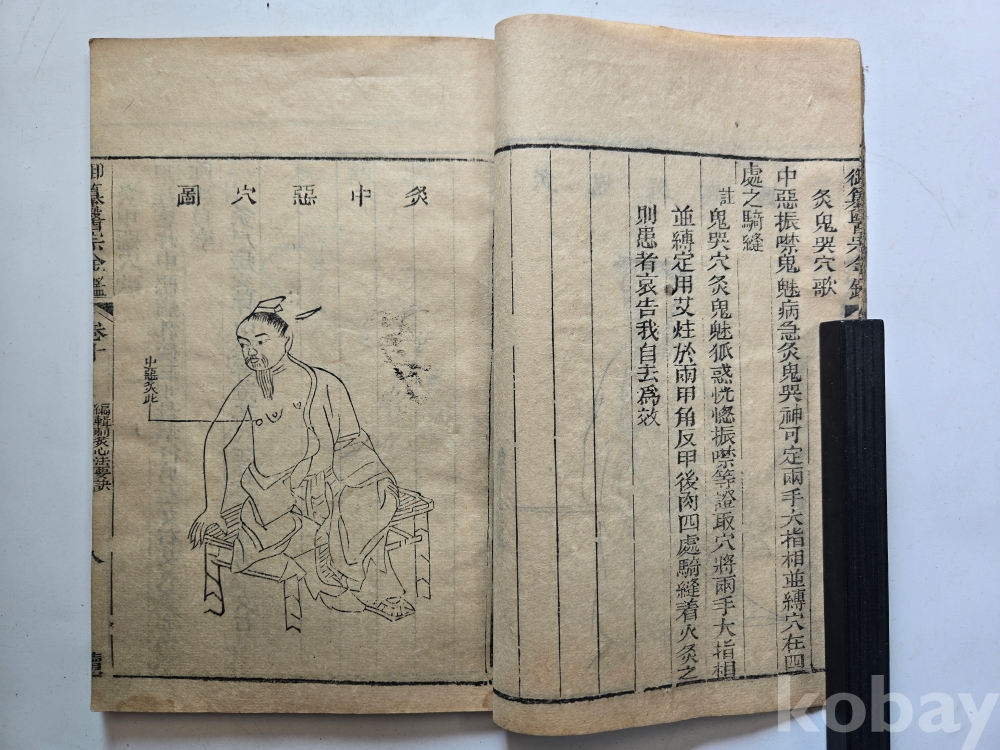 御纂醫宗金鑑
灸鬼哭穴歌
中惡振噤鬼魅病急灸鬼哭神可定兩手大指相並縛穴在四
處之騎縫
註鬼哭穴灸鬼魅狐惑恍惚振噤等證取穴將兩手大指相
並縛定用艾炷於兩甲角反甲後肉四處騎縫着火灸之
則患者哀告我自去為效
灸中惡穴圖
中惡灸此
御纂醫宗金鑑
卷十
編輯刺灸心法要訣
八
kobay